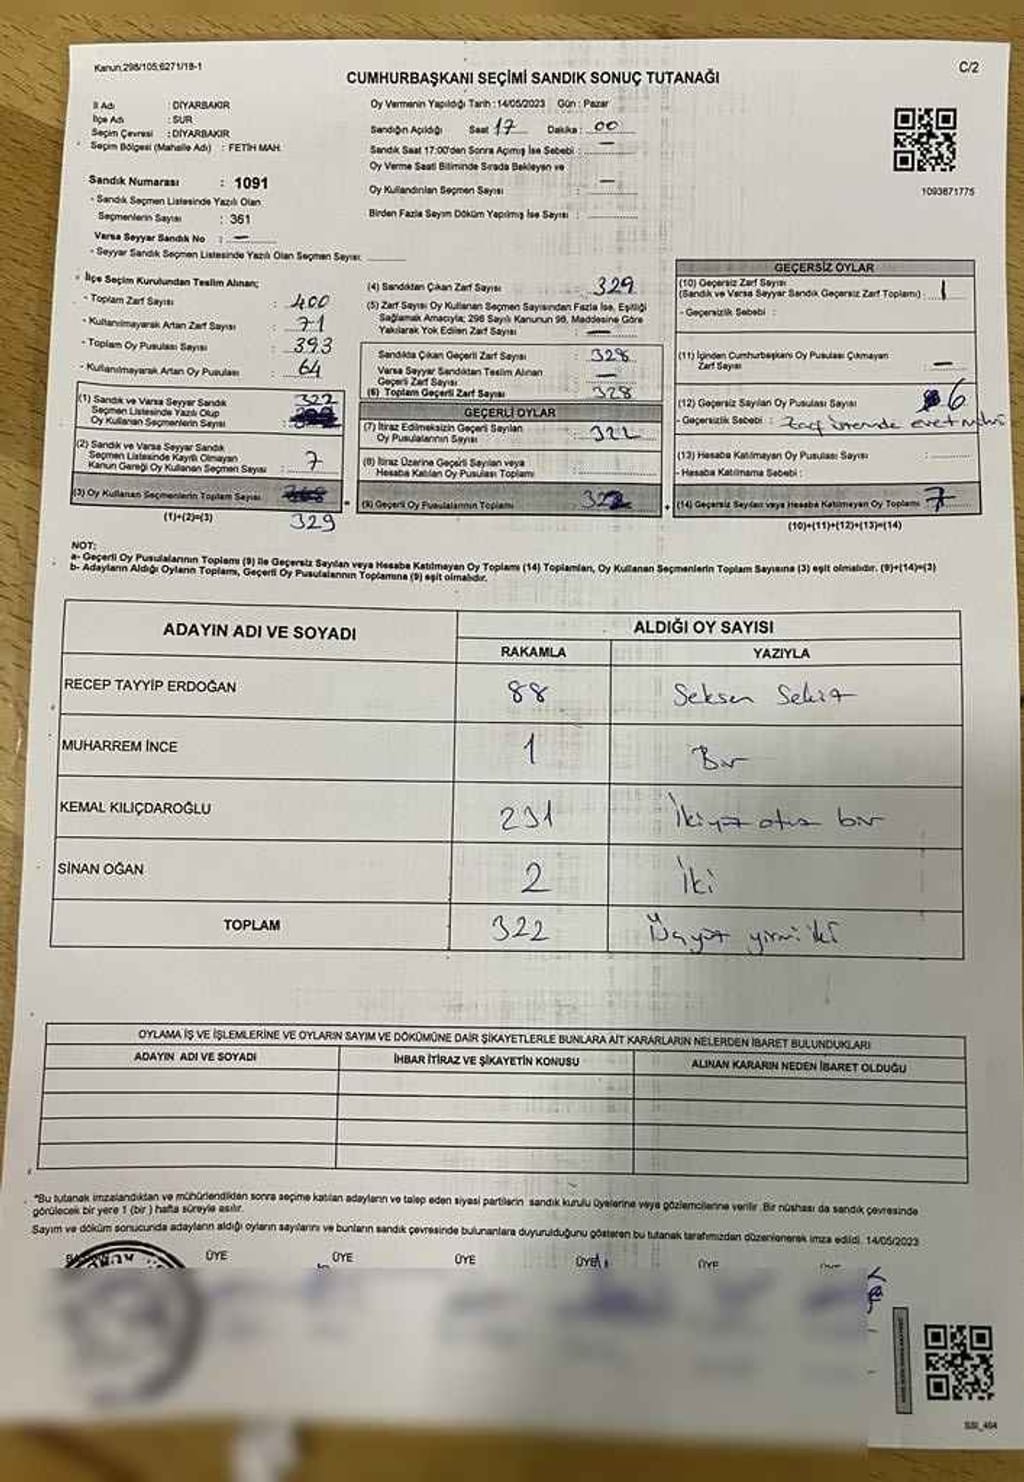 Kanun.298/105;6271/18-1
C/2
CUMHURBAŞKANI SEÇİMİ SANDIK SONUÇ TUTANAĞI
İl Adı : DİYARBAKIR
İlçe Adı : SUR
Seçim Çevresi : DİYARBAKIR
Seçim Bölgesi (Mahalle Adı) : FETİH MAH.
Sandık Numarası : 1091
- Sandık Seçmen Listesinde Yazılı Olan
Seçmenlerin Sayısı : 361
Varsa Seyyar Sandık No : —
- Seyyar Sandık Seçmen Listesinde Yazılı Olan Seçmen Sayısı:
Oy Vermenin Yapıldığı Tarih : 14/05/2023 Gün : Pazar
Sandığın Açıldığı Saat 17 Dakika : 00
Sandık Saat 17:00'den Sonra Açımış İse Sebebi : —
Oy Verme Saati Bitiminde Sırada Bekleyen ve
Oy Kullandırılan Seçmen Sayısı : —
Birden Fazla Sayım Döküm Yapılmış İse Sayısı :
1093871775
- İlçe Seçim Kurulundan Teslim Alınan;
- Toplam Zarf Sayısı : 400
- Kullanılmayarak Artan Zarf Sayısı : 71
- Toplam Oy Pusulası Sayısı : 393
- Kullanılmayarak Artan Oy Pusulası : 64
(1) Sandık ve Varsa Seyyar Sandık
Seçmen Listesinde Yazılı Olup
Oy Kullanan Seçmenlerin Sayısı : 322
(2) Sandık ve Varsa Seyyar Sandık
Seçmen Listesinde Kayıtlı Olmayan
Kanun Gereği Oy Kullanan Seçmen Sayısı : 7
(3) Oy Kullanan Seçmenlerin Toplam Sayısı
(1)+(2)=(3) 329
(4) Sandıktan Çıkan Zarf Sayısı : 329
(5) Zarf Sayısı Oy Kullanan Seçmen Sayısından Fazla İse, Eşitliği
Sağlamak Amacıyla; 298 Sayılı Kanunun 98. Maddesine Göre
Yakılarak Yok Edilen Zarf Sayısı : —
Sandıkta Çıkan Geçerli Zarf Sayısı : 328
Varsa Seyyar Sandıktan Teslim Alınan
Geçerli Zarf Sayısı : —
(6) Toplam Geçerli Zarf Sayısı : 328
GEÇERLİ OYLAR
(7) İtiraz Edilmeksizin Geçerli Sayılan
Oy Pusulalarının Sayısı : 322
(8) İtiraz Üzerine Geçerli Sayılan veya
Hesaba Katılan Oy Pusulası Toplamı :
(9) Geçerli Oy Pusulalarının Toplamı 322
GEÇERSİZ OYLAR
(10) Geçersiz Zarf Sayısı
(Sandık ve Varsa Seyyar Sandık Geçersiz Zarf Toplamı) : 1
- Geçersizlik Sebebi :
(11) İçinden Cumhurbaşkanı Oy Pusulası Çıkmayan
Zarf Sayısı : —
(12) Geçersiz Sayılan Oy Pusulası Sayısı : 6
- Geçersizlik Sebebi : zarf üzerinde evet mührü
(13) Hesaba Katılmayan Oy Pusulası Sayısı :
- Hesaba Katılmama Sebebi :
(14) Geçersiz Sayılan veya Hesaba Katılmayan Oy Toplamı 7
(10)+(11)+(12)+(13)=(14)
NOT:
a- Geçerli Oy Pusulalarının Toplamı (9) ile Geçersiz Sayılan veya Hesaba Katılmayan Oy Toplamı (14) Toplamları, Oy Kullanan Seçmenlerin Toplam Sayısına (3) eşit olmalıdır. (9)+(14)=(3)
b- Adayların Aldığı Oyların Toplamı, Geçerli Oy Pusulalarının Toplamına (9) eşit olmalıdır.
ADAYIN ADI VE SOYADI
ALDIĞI OY SAYISI
RAKAMLA YAZIYLA
RECEP TAYYİP ERDOĞAN 88 Seksen Sekiz
MUHARREM İNCE 1 Bir
KEMAL KILIÇDAROĞLU 231 İkiyüz otuz bir
SİNAN OĞAN 2 İki
TOPLAM 322 Üçyüz yirmi iki
OYLAMA İŞ VE İŞLEMLERİNE VE OYLARIN SAYIM VE DÖKÜMÜNE DAİR ŞİKAYETLERLE BUNLARA AİT KARARLARIN NELERDEN İBARET BULUNDUKLARI
ADAYIN ADI VE SOYADI İHBAR İTİRAZ VE ŞİKAYETİN KONUSU ALINAN KARARIN NEDEN İBARET OLDUĞU
*Bu tutanak imzalandıktan ve mühürlendikten sonra seçime katılan adayların ve talep eden siyasi partilerin sandık kurulu üyelerine veya gözlemcilerine verilir. Bir nüshası da sandık çevresinde
görülecek bir yere 1 (bir ) hafta süreyle asılır.
Sayım ve döküm sonucunda adayların aldığı oyların sayılarını ve bunların sandık çevresinde bulunanlara duyurulduğunu gösteren bu tutanak tarafımızdan düzenlenerek imza edildi. 14/05/2023
ÜYE ÜYE ÜYE ÜYE ÜYE
SSI_404